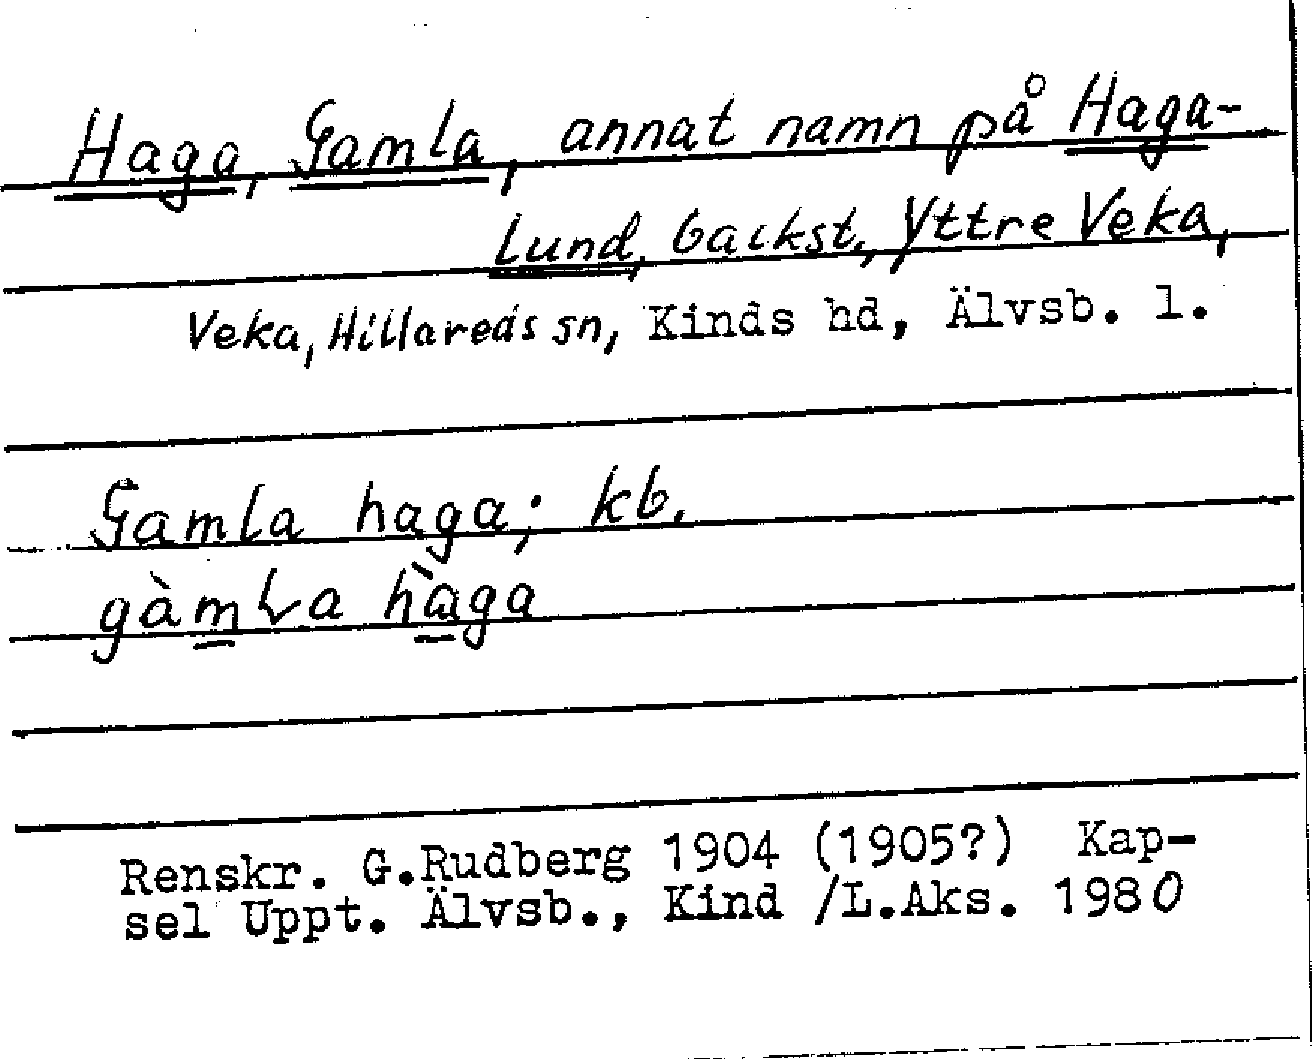 Haga, Gamla, annat namn på Haga-
lund, backst., Yttre Veka,
Veka, Hillareds sn, Kinds hd, Älvsb. l.
Gamla haga; kb.
gàmla hàga
Renskr. G.Rudberg 1904 (1905?) Kap-
sel Uppt. Älvsb., Kind /L.Aks. 1980